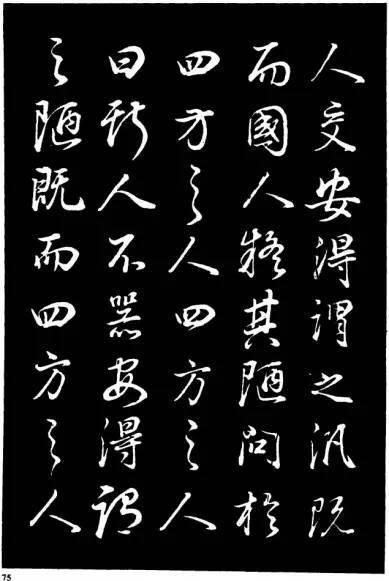 人交安得謂之汎既
而國人疑其陋問於
四方之人四方之人
曰斯人不器安得謂
之陋既而四方之人
75